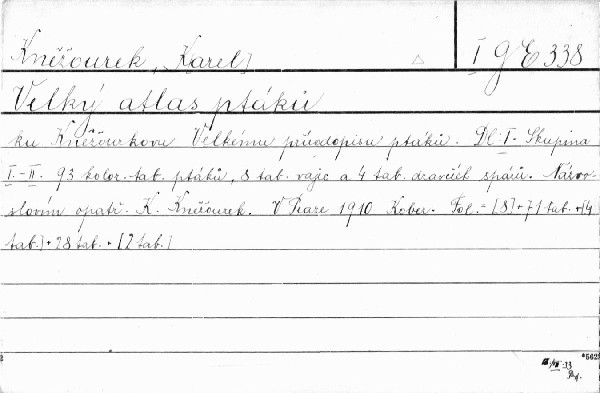 Kněžourek, Karel] I g E 338
Velký atlas ptáků
ku Kněžourkovu Velkému přírodopisu ptáků. Dl. I. Skupina
I.-II. 93 kolor. tab. ptáků, 8 tab. vajec a 4 tab. dravčích spárů. Názvo-
slovím opatř. K. Kněžourek. V Praze 1910 Kober. Fol. = [8]+71 tab. +[4
tab.]+28 tab. + [2 tab.]